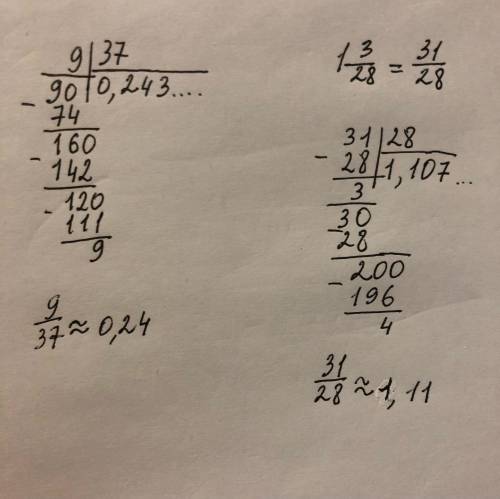 9 | 37
90 | 0,243....
- 74
160
- 142
120
- 111
9
9/37 ≈ 0,24
1 3/28 = 31/28
31 | 28
- 28 | 1,107...
3
30
- 28
200
- 196
4
31/28 ≈ 1,11